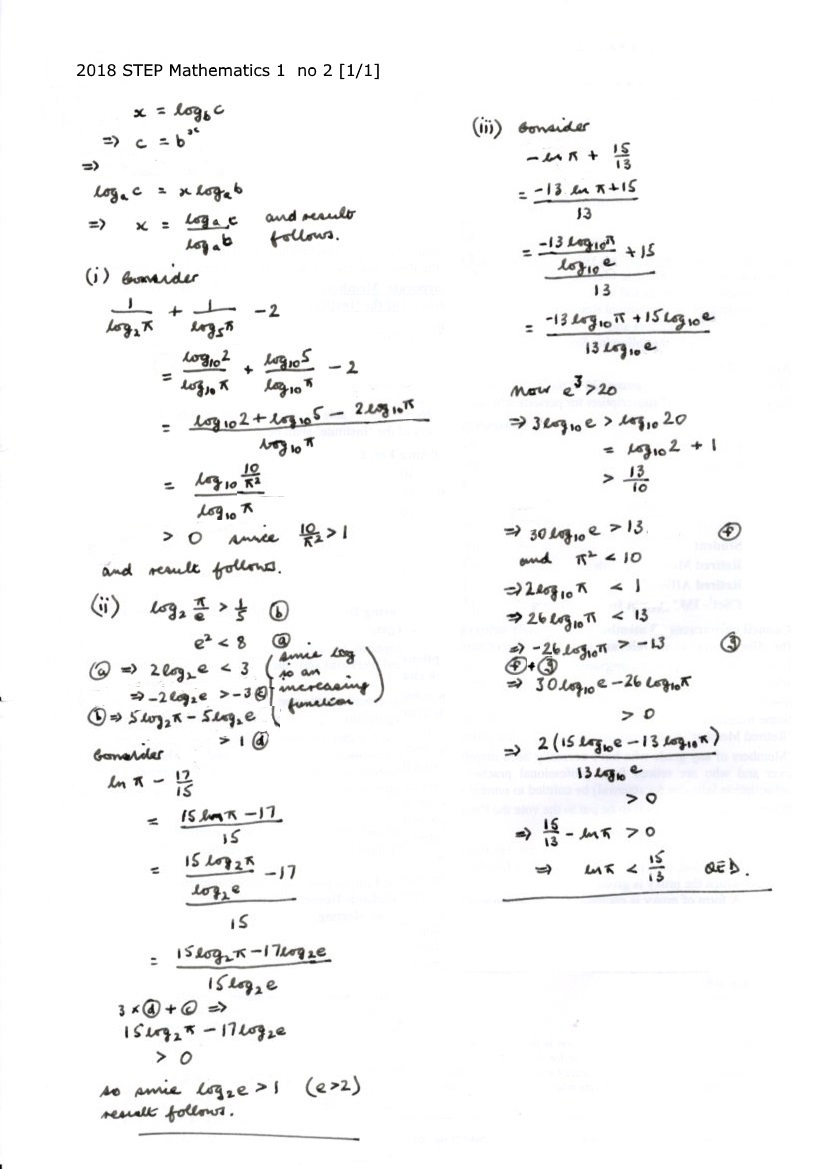 2018 STEP Mathematics 1 no 2 [1/1]
x = log_b c
⇒ c = b^x
⇒
log_a c = x log_a b
⇒ x = log_a c / log_a b and result
follows.
(i) Consider
1/log_2 π + 1/log_5 π − 2
= log_10 2 / log_10 π + log_10 5 / log_10 π − 2
= (log_10 2 + log_10 5 − 2 log_10 π) / log_10 π
= log_10 (10/π²) / log_10 π
> 0 since 10/π² > 1
and result follows.
(ii) log_2 π/e > 1/5 ⓑ
e² < 8 ⓐ
ⓐ ⇒ 2 log_2 e < 3 (since log
is an
⇒ −2 log_2 e > −3 ⓒ increasing
function)
ⓑ ⇒ 5 log_2 π − 5 log_2 e
> 1 ⓓ
Consider
ln π − 17/15
= (15 ln π − 17) / 15
= (15 log_2 π / log_2 e − 17) / 15
= (15 log_2 π − 17 log_2 e) / 15 log_2 e
3 × ⓓ + ⓒ ⇒
15 log_2 π − 17 log_2 e
> 0
so since log_2 e > 1 (e > 2)
result follows.
(iii) Consider
− ln π + 15/13
= (−13 ln π + 15) / 13
= (−13 log_10 π / log_10 e + 15) / 13
= (−13 log_10 π + 15 log_10 e) / 13 log_10 e
Now e³ > 20
⇒ 3 log_10 e > log_10 20
= log_10 2 + 1
> 13/10
⇒ 30 log_10 e > 13.
and π² < 10
⇒ 2 log_10 π < 1
⇒ 26 log_10 π < 13
⇒ −26 log_10 π > −13
⇒ 30 log_10 e − 26 log_10 π
> 0
⇒ 2(15 log_10 e − 13 log_10 π) / 13 log_10 e
> 0
⇒ 15/13 − ln π > 0
⇒ ln π < 15/13 QED.